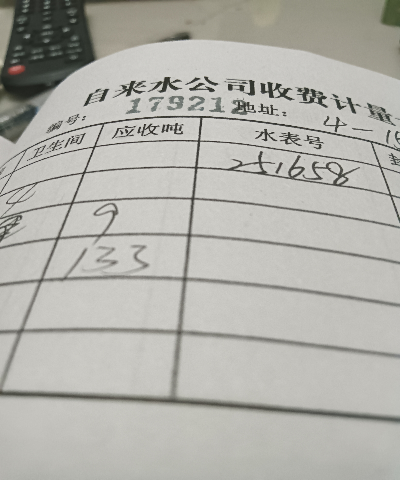 自来水公司收费计量
编号: 179212 地址: 4-16
卫生间 应收吨 水表号
251658
4
9
133